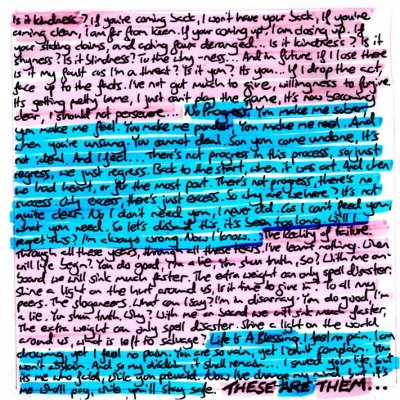 Is it kindness? If you're coming back, I won't have your back, If you're
coming clean, I am far from keen. If your coming up, I am closing up. If
your staking claims, and acting four deranged... Is it kindness? Is it
shyness? Is it blindness? To the why-ness... And in future if I lose there
is it my fault cos I'm a threat? Is it you? It's you... If I drop the act,
face up to the facts. I've not got much to give, willingness to forgive.
It's getting pretty lame, I just can't play the game, it's now becoming
clear, I should not persevere... No Progress. You make me sober,
you make me feel. You make me ponder. You make me real. And
when you're unsung. You cannot deal. So you come undone, It's
not ideal. And I feel... There's not progress in this process, so just
regress, we just regress. Back to the start, when it was art. And when
we had heart, or for the most part. There's not progress, there's no
success. Only excess, there's just excess. So why are we here? It's not
quite clear. No I don't need you, I never did. Cos I can't feed you,
what you need. So let's disband this, it's been too long. Will I
regret this? I'm always wrong. Now I know... The Reality of failure.
Through all these years, through all these tears, I've learnt nothing. When
will life begin? You do good, I'm a lie. You shun truth, So? With me on
board we will sink much faster. The extra weight can only spell disaster.
Shine a light on the hurt around us, Is it time to give in? To all my
peers. The sloganeers. What can I say? I'm in disarray. You do good I'm
a lie. You shun truth, Why? With me on board we will sink much faster,
The extra weight can only spell disaster. Shine a light on the world
around us, what is left to salvage? Life Is A Blessing. I feel no pain. I am
drowning, yet I feel no pain. You are so vain, yet I don't complain. You
won't abstain. And so my disdain, it shall remain... I saved my life, but
its me who failed, while you prevailed. Now the change my mind, but it's
me who'll pay, while you'll stay safe. THESE ARE THEM...